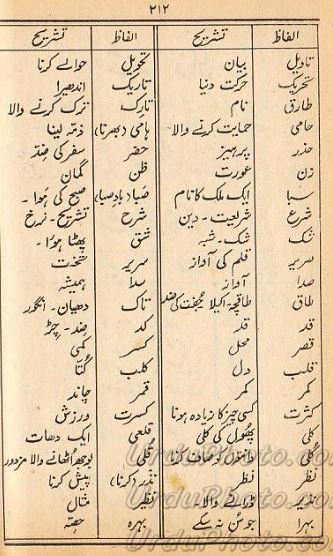 ۲۱۲
الفاظ تشریح الفاظ تشریح
تاویل بیان تحویل حوالے کرنا
تحریک حرکت دنیا تاریک اندھیرا
طارق نام تارک ترک کرنے والا
حامی حمایت کرنے والا ہامی (بھرنا) ذمہ لینا
حذر پرہیز حضر سفر کی ضد
زن عورت ظن گمان
سبا ایک ملک کا نام صبا (باد صبا) صبح کی ہوا۔
شرع شریعت۔ دین شرح تشریح۔ نرخ
شک شک۔ شبہ شق پھٹا ہوا۔
صریر قلم کی آواز سریر تخت
صدا آواز سدا ہمیشہ
طاق طاقچہ اکیلا جفت کی ضد تاک دھیان۔ انگور
قد قد کد ضد۔ چڑ
قصر محل کسر کمی
قلب دل کلب کتا
کمر کمر قمر چاند
کثرت کسی چیز کا زیادہ ہونا کسرت ورزش
کلی پھول کی کلی قلعی ایک دھات
کلی پانی منہ صاف کرنا قلی بوجھ اٹھانے والا مزدور
نظر نظر نذر (کرنا) پیش کرنا
نذیر ڈرانے والا۔ نظیر مثال
بہرا جو سن نہ سکے بہرہ حصہ
UrduPhoto.com
UrduPhoto.com